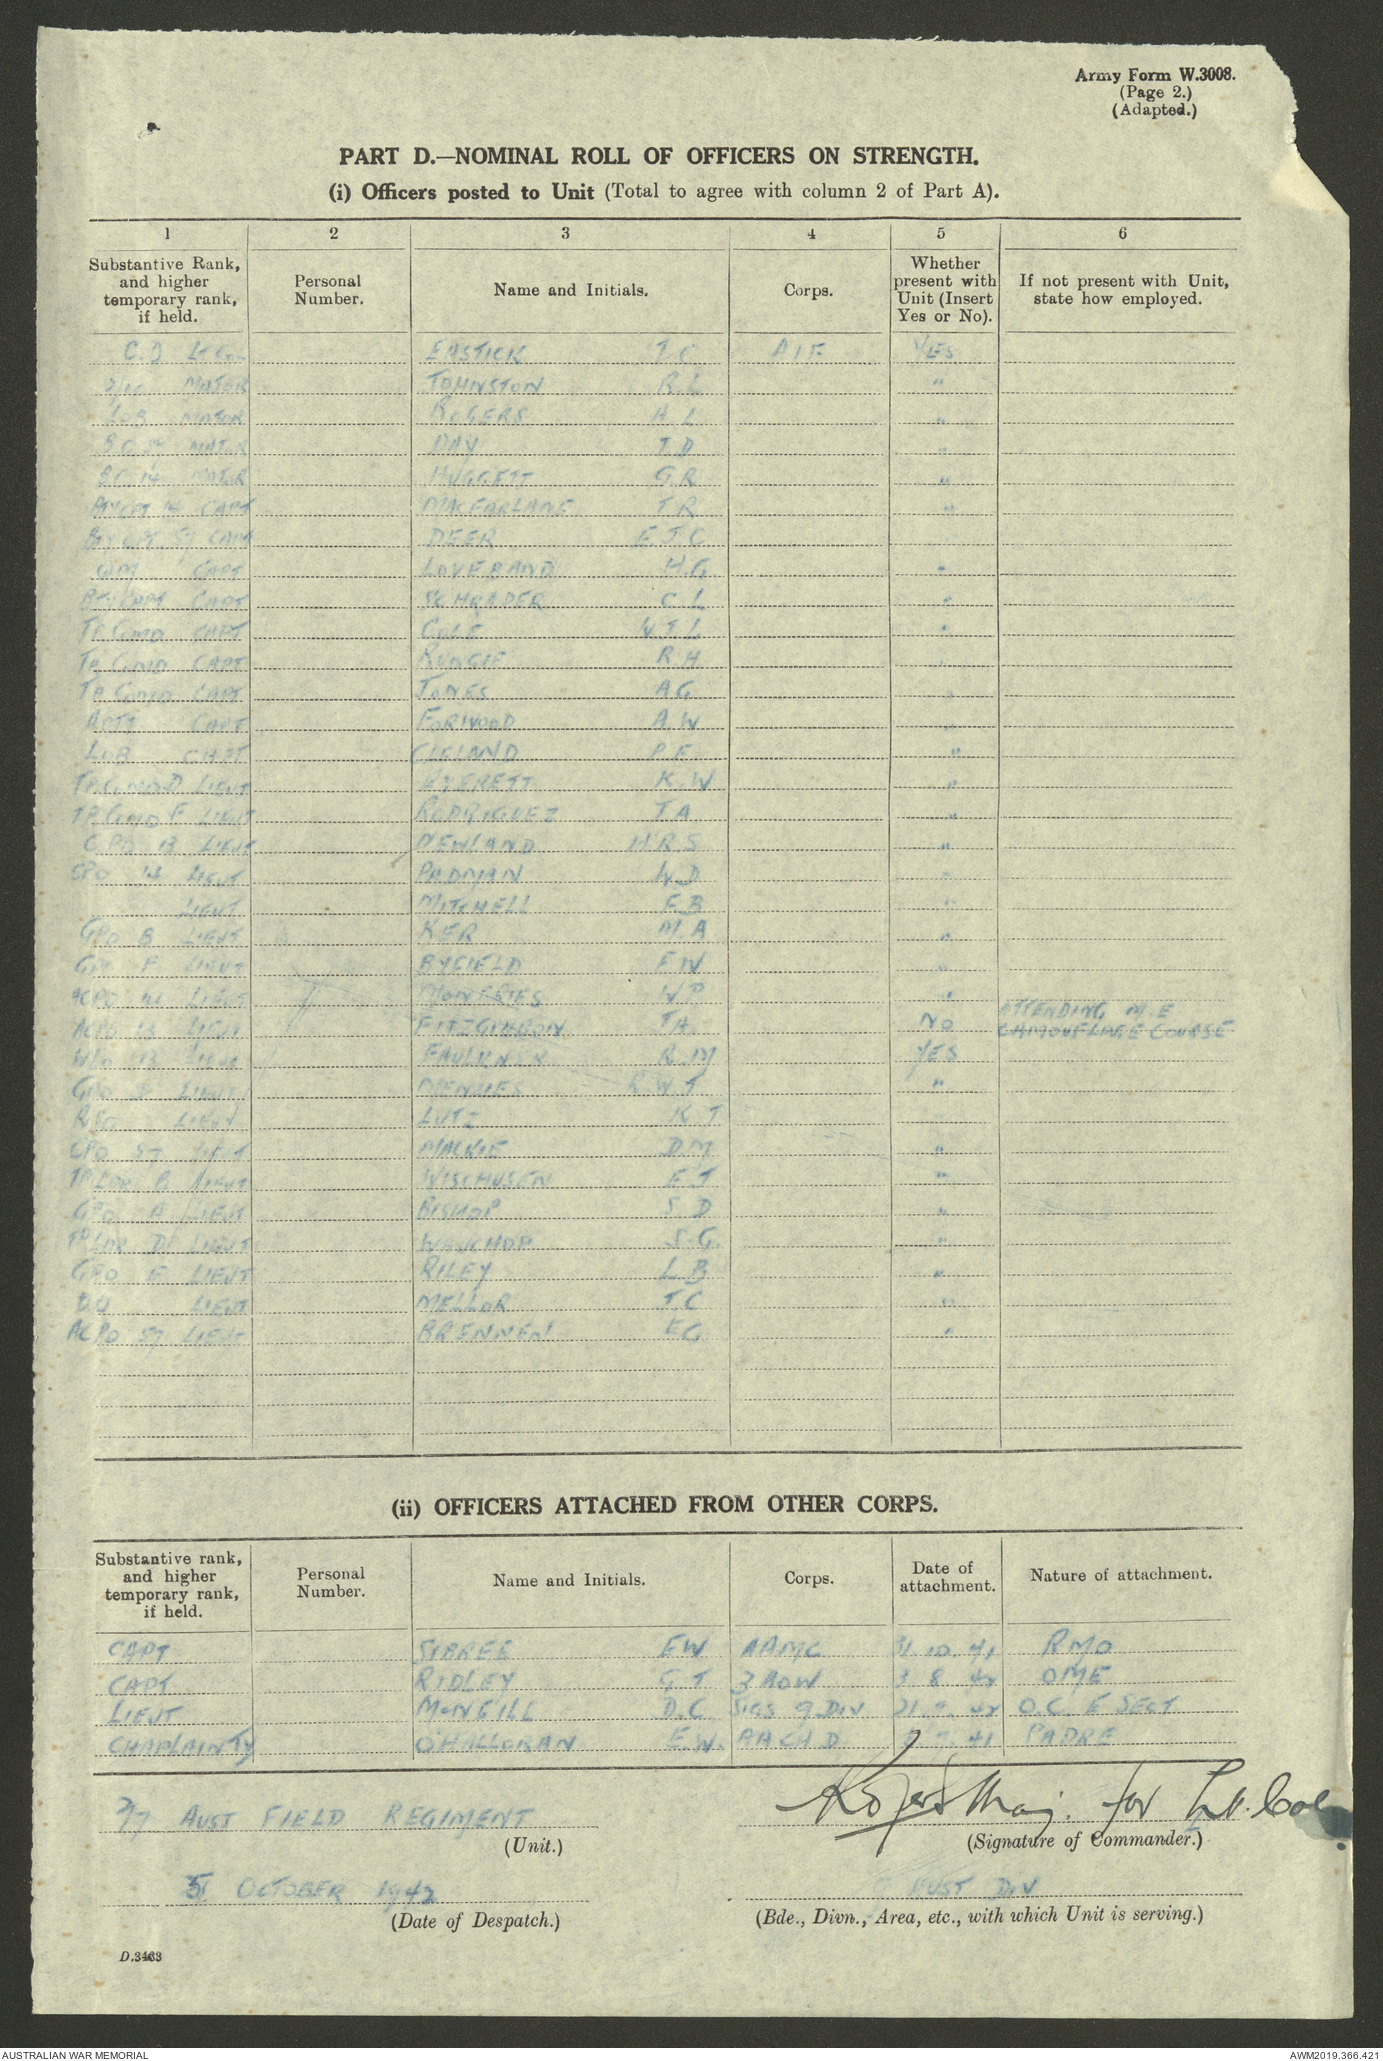 Army Form W.3008.
(Page 2.)
(Adapted.)
PART D.—NOMINAL ROLL OF OFFICERS ON STRENGTH.
(i) Officers posted to Unit (Total to agree with column 2 of Part A).
1 2 3 4 5 6
Substantive Rank, and higher temporary rank, if held. Personal Number. Name and Initials. Corps. Whether present with Unit (Insert Yes or No). If not present with Unit, state how employed.
EASTICK T C AIF YES
MAJOR JOHNSTON R.L "
LOB MAJOR ROGERS H L "
MAJOR DAY J D "
B.C. 14 MAJOR HUGGETT G R "
CAPT MACFARLANE T R "
CAPT DEER E J C
QM CAPT LOVEBAND H.G "
BTY CAPT CAPT SCHRADER C L "
TP COMD CAPT COLE W J L "
TP COMD CAPT RUNGIE R H "
TP COMD CAPT JONES A G "
ADJT CAPT FORWOOD A.W "
LOB CAPT CLELAND P F "
TP COMD D LIEUT EVERETT K.W "
TP COMD F LIEUT RODRIGUEZ T A "
CPO 13 LIEUT NEWLAND H R S "
CPO 14 LIEUT PADMAN W.D "
LIEUT MITCHELL F B "
GPO B LIEUT KER M.A "
GPO F LIEUT BYFIELD F W "
ACPO 14 LIEUT MONFRIES W P "
ACPO 13 LIEUT FITZGIBBON J A NO ATTENDING M.E CAMOUFLAGE COURSE
LIEUT FAULKNER R.M YES
GPO LIEUT MENZIES R.W.T "
LIEUT LUTZ K J
CPO 57 LIEUT MACKIE D M "
TP LDR B LIEUT WISCHUSEN E J "
GPO A LIEUT BISHOP S D "
TP LDR D LIEUT WAUCHOP S.G. "
GPO E LIEUT RILEY L B "
LIEUT MELLOR J C "
ACPO 57 LIEUT BRENNEN E G "
(ii) OFFICERS ATTACHED FROM OTHER CORPS.
Substantive rank, and higher temporary rank, if held. Personal Number. Name and Initials. Corps. Date of attachment. Nature of attachment.
CAPT SIBREE E W AAMC 31.10.41 RMO
CAPT RIDLEY G T 3 AOW 3 8 42 OME
LIEUT D.C. SIGS 9 DIV O.C. E SECT
CHAPLAIN O'HALLORAN E.W. AACHD PADRE
2/7 AUST FIELD REGIMENT
(Unit.)
Rogers Maj. for Lt. Col
(Signature of Commander.)
31 OCTOBER 1942
(Date of Despatch.)
9 AUST DIV
(Bde., Divn., Area, etc., with which Unit is serving.)
D.3463
AUSTRALIAN WAR MEMORIAL
AWM2019.366.421